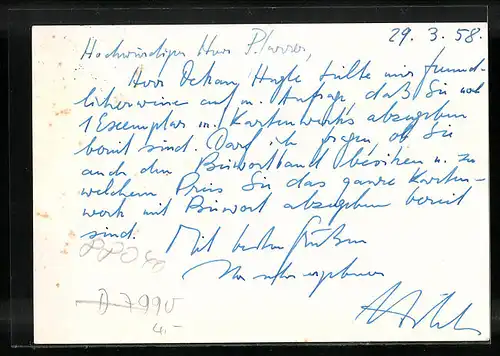 29. 3. 58.
Hochwürdiger Herr Pfarrer,
Herr Dekan teilte mir freund-
licherweise auf m. Anfrage, daß Sie noch
1 Exemplar m. Kartenwerks abzugeben
bereit sind. Darf ich fragen ob Sie
auch den Beiwortband besitzen u. zu
welchem Preis Sie das ganze Karten-
werk mit Beiwort abzugeben bereit
sind.
Mit besten Grüßen
Ihr sehr ergebener
D 7990
4.-